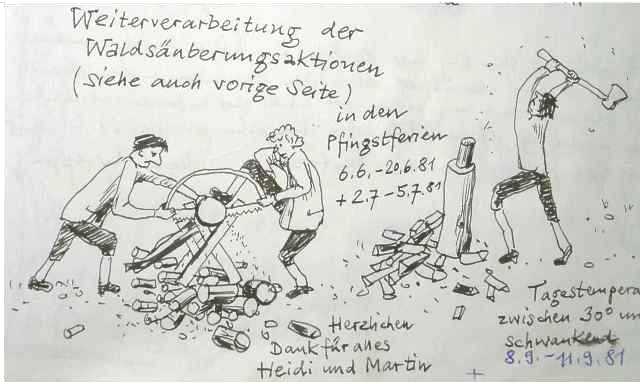 Weiterverarbeitung der
Waldsäuberungsaktionen
(siehe auch vorige Seite)
in den
Pfingstferien
6.6.-20.6.81
+ 2.7-5.7.81
Herzlichen
Dank für alles
Heidi und Martin
Tagestempera
zwischen 30° un
schwankend
8.9.-11.9.81
+